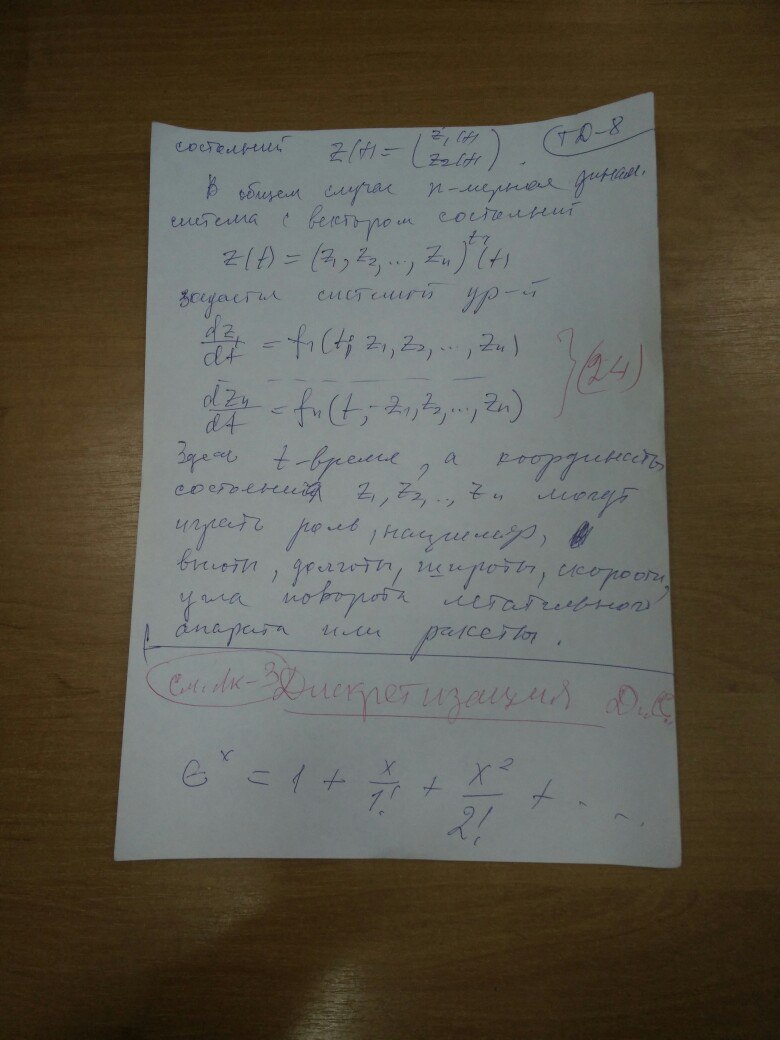 состояний Z(t) = (z₁(t) z₂(t)). ТД-8
В общем случае n-мерная динам.
система с вектором состояний
Z(t) = (z₁, z₂, ..., zₙ)ᵗʳ(t)
задаётся системой ур-й
dz₁/dt = f₁(t, z₁, z₂, ..., zₙ)
dzₙ/dt = fₙ(t, z₁, z₂, ..., zₙ) } (24)
Здесь t-время, а координаты
состояния z₁, z₂, .., zₙ могут
играть роль, например,
высоты, долготы, широты, скорости,
угла поворота летательного
апарата или ракеты.
см. Лк-3 Дискретизация
eˣ = 1 + x/1! + x²/2! + ...